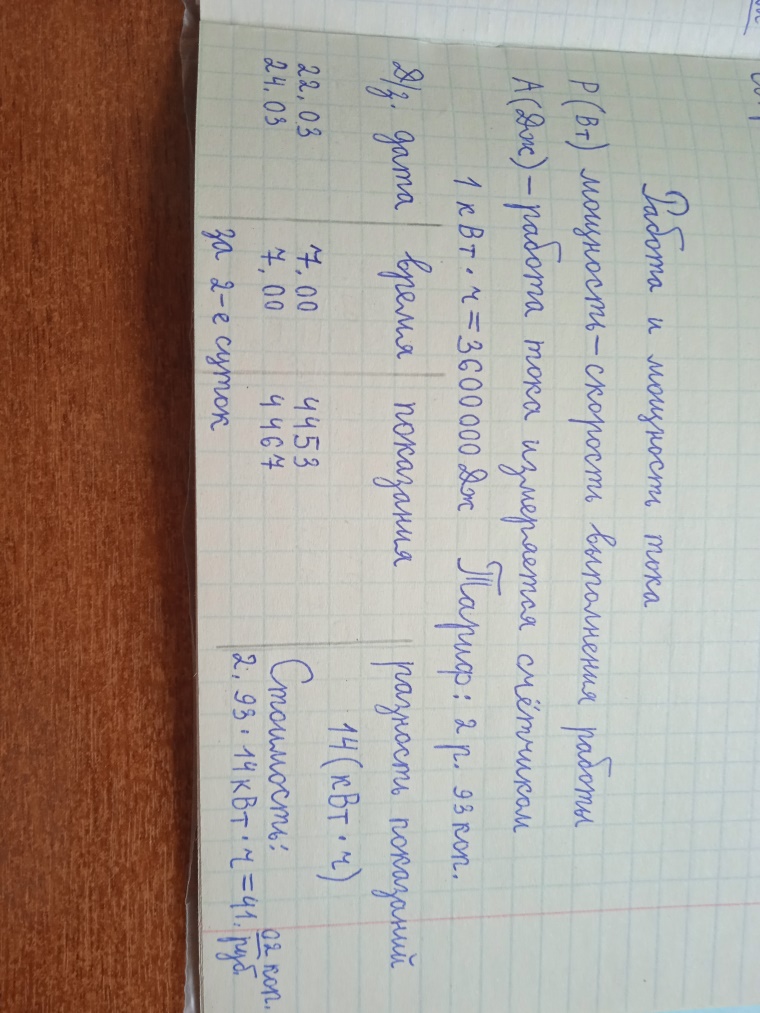 Работа и мощность тока
P (Вт) мощность – скорость выполнения работы
А (Дж) – работа тока измеряется счётчиком
1 кВт · ч = 3600000 Дж Тариф: 2 р. 93 коп.
Д/з. дата время показания разность показаний
22.03 7.00 4453 14 (кВт · ч)
24.03 7.00 4467 Стоимость:
за 2-е суток 2,93 · 14 кВт · ч = 41. руб 02 коп.